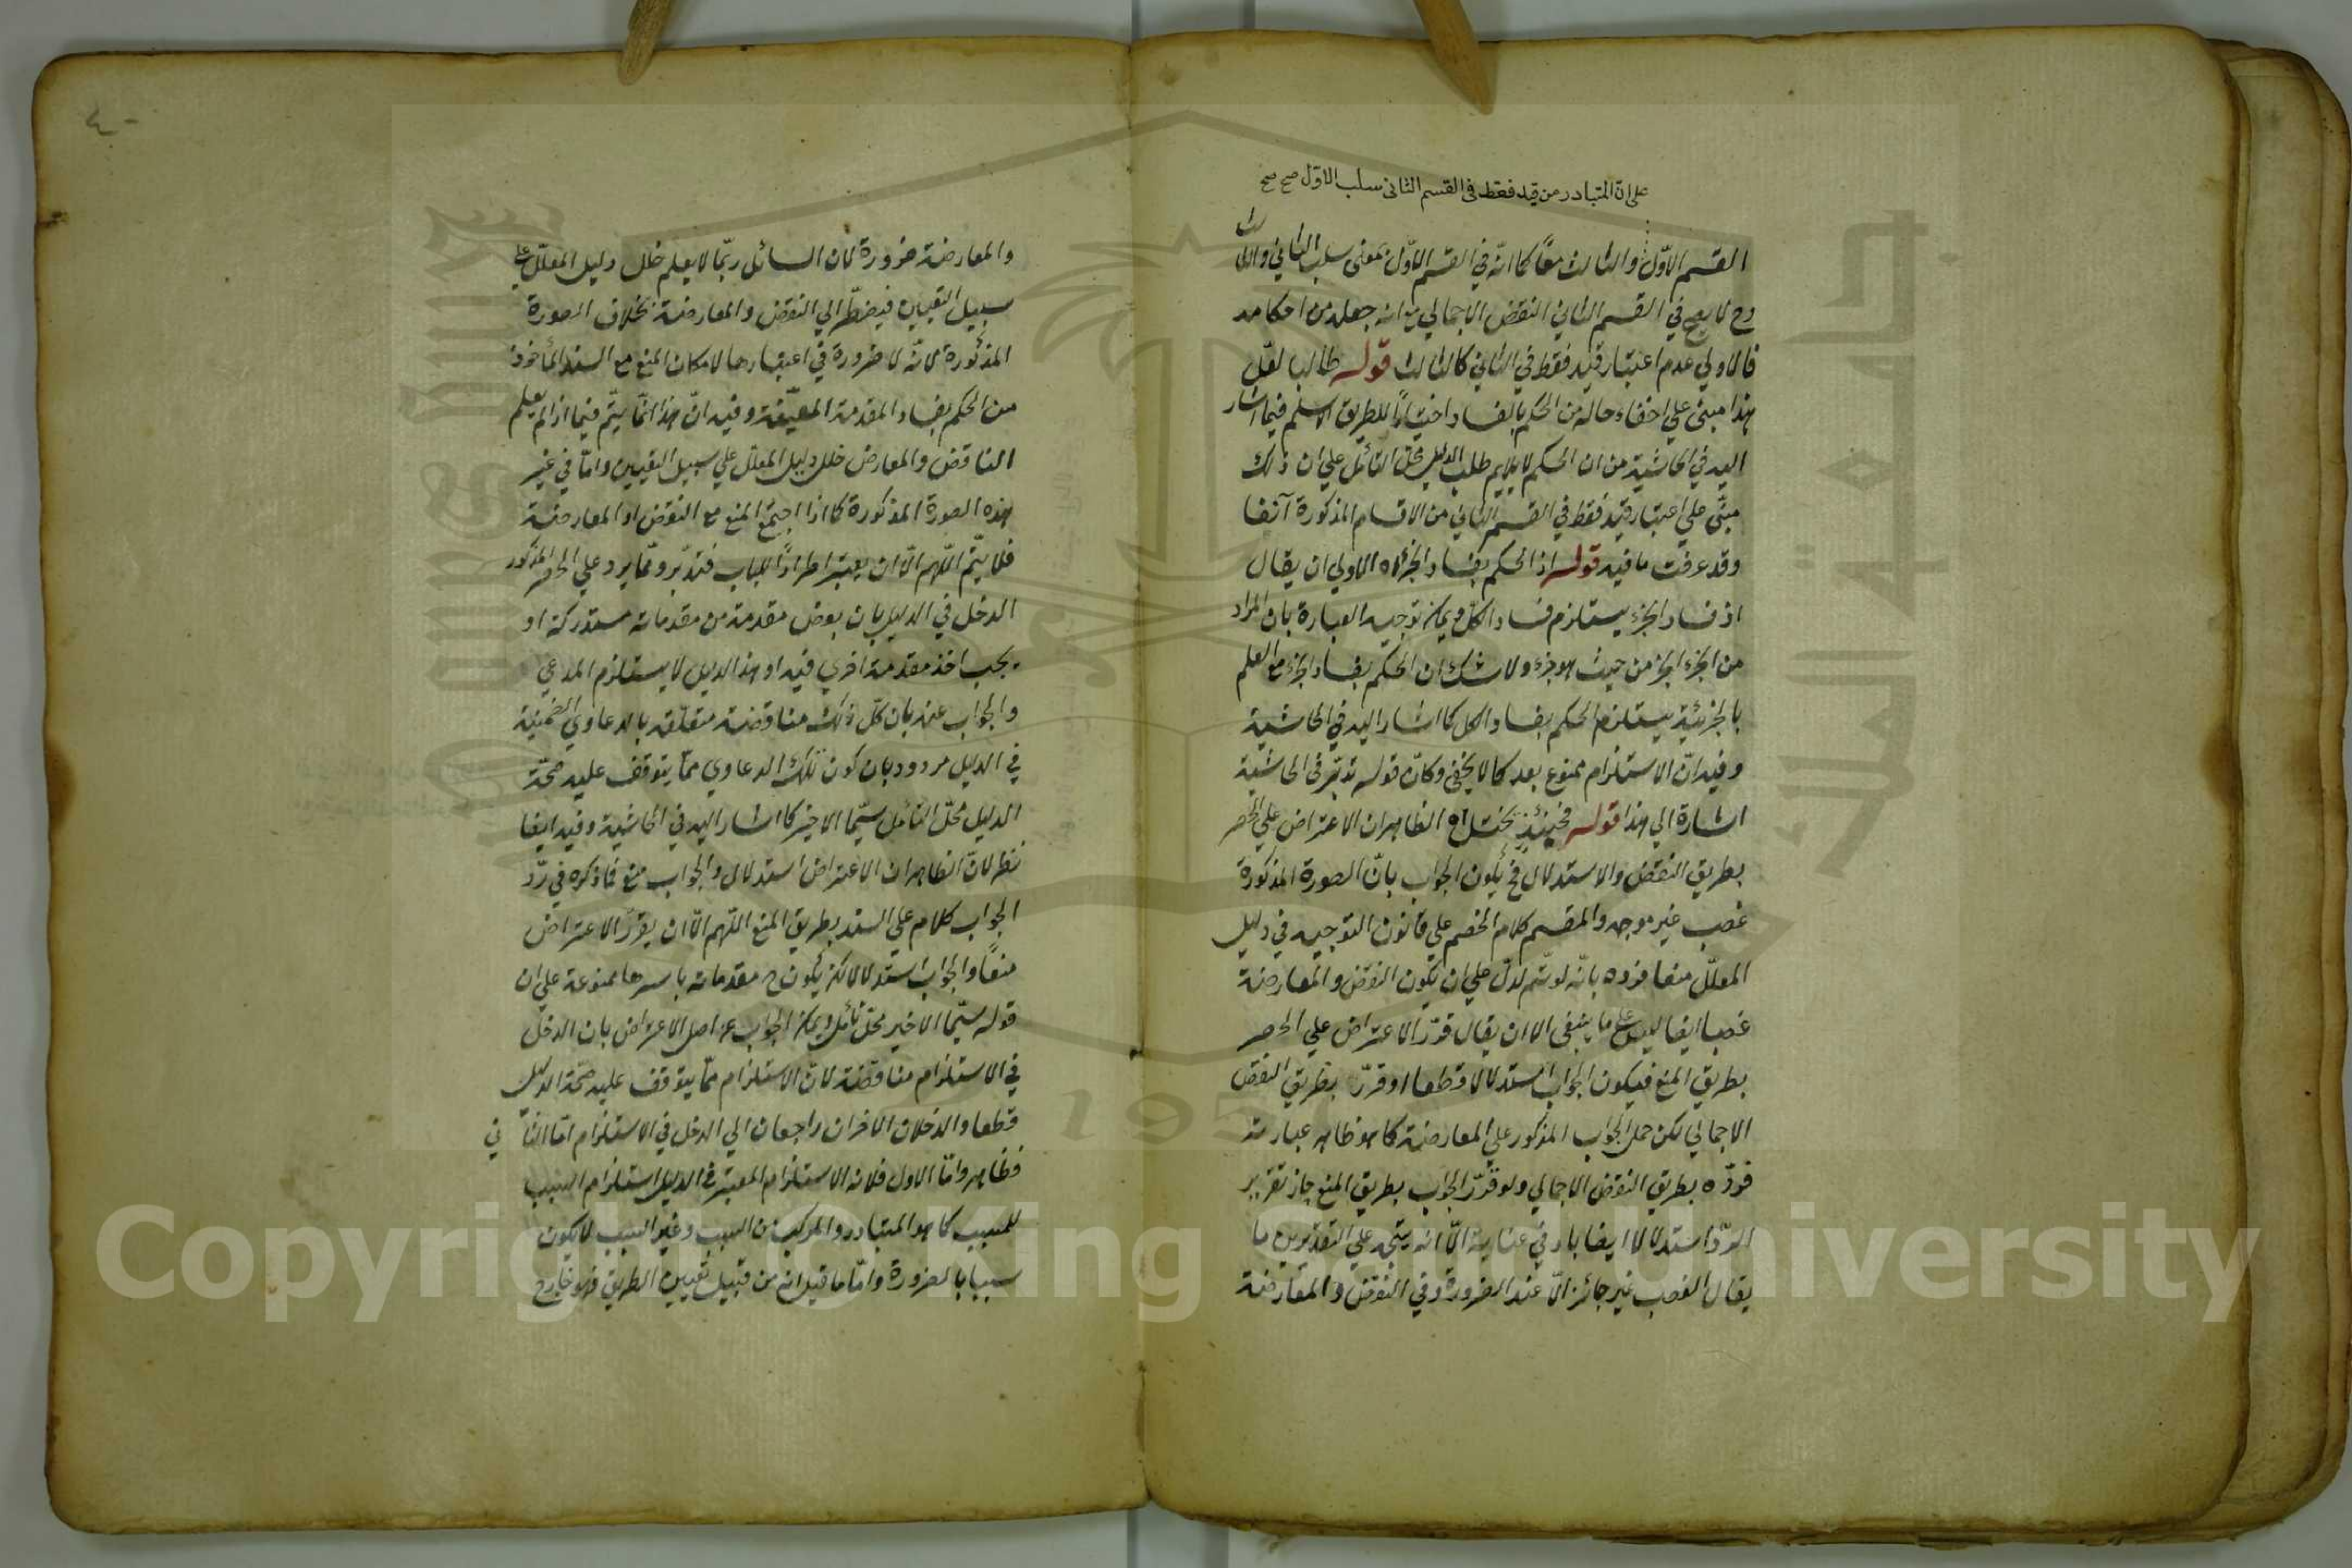 على ان المتبادر من قيد فقط فى القسم الثانى سلب الاول صح صح
القسم الاوّل والثالث معًا كما انّه في القسم الاوّل بمعنى سلب الثاني والثالث
وح لا يصح في القسم الثاني النقض الاجمالي مع انه جعله من احكامه
فالاولي عدم اعتبار قيد فقط في الثاني كالثالث قوله طالب لعل
هذا مبني علي اخفاء حاله من الحكم بالفساد اختيارًا للطريق الاسلم فيما اشار
اليه في الحاشية من ان الحكم لا يلايم طلب الدليل محل التأمل علي ان ذلك
مبني علي اعتبار قيد فقط في القسم الثاني من الاقسام المذكورة آنفا
وقد عرفت ما فيه قوله اذ الحكم بفساد الجزء اه الاولي ان يقال
اذ فساد الجزء يستلزم فساد الكل ويمكن توجيه العبارة بان المراد
من الجزء الجزء من حيث هو جزء ولا شك ان الحكم بفساد الجزء مع العلم
بالجزئية يستلزم الحكم بفساد الكل كما اشار اليه في الحاشية
وفيه انّ الاستلزام ممنوع بعد كما لا يخفى وكانّ قوله تدبّر في الحاشية
اشارة الي هذا قوله فحينئذ يختل اه الظاهر ان الاعتراض علي الحصر
بطريق النقض والاستدلال فح يكون الجواب بانّ الصورة المذكورة
غصب غير موجه والمقسم كلام الخصم علي قانون التوجيه في دليل
المعلّل منعا فرده بانّه لو تم لدلّ علي ان يكون النقض والمعارضة
غصبا ايضا ليس علي ما ينبغي الا ان يقال قرّر الاعتراض علي الحصر
بطريق المنع فيكون الجواب استدلالا قطعا او قرّر بطريق النقض
الاجمالي لكن حمل الجواب المذكور علي المعارضة كما هو ظاهر عبارته
فردّه بطريق النقض الاجمالي ولو قرّر الجواب بطريق المنع جاز تقرير
الردّ استدلالا ايضا بادني عناية الّا انه يتجه علي التقديرين ما
يقال الغصب غير جائز الّا عند الضرورة وفي النقض والمعارضة
والمعارضة ضرورة لان السائل ربّما لا يعلم خلل دليل المعلّل علي
سبيل التعيين فيضطرّ الي النقض والمعارضة بخلاف الصورة
المذكورة لانّه لا ضرورة في اعتبارها لامكان المنع مع السند المأخوذ
من الحكم بفساد المقدمة المعيّنة وفيه انّ هذا انّما يتم فيما اذا لم يعلم
الناقض والمعارض خلل دليل المعلّل علي سبيل التعيين وامّا في غير
هذه الصورة المذكورة كما اذا اجتمع المنع مع النقض او المعارضة
فلا يتّم اللّهم الّا ان يعتبر اطرادًا للباب فتدبّر وممّا يرد علي الحصر المذكور
الدخل في الدليل بان بعض مقدمة من مقدماته مستدركة او
يجب اخذ مقدمة اخري فيه او هذا الدليل لا يستلزم المدعي
والجواب عنه بان كلّ ذلك مناقضة متعلّقة بالدعاوي الضمنيّة
في الدليل مردود بان كون تلك الدعاوي ممّا يتوقف عليه صحّة
الدليل محلّ التأمّل سيّما الاخير كما اشار اليه في الحاشية وفيه ايضا
نظر لانّ الظاهر ان الاعتراض استدلال والجواب منع فما ذكره في ردّ
الجواب كلام علي السند بطريق المنع اللّهم الّا ان يقرّر الاعتراض
منعًا والجواب استدلالا لكن يكون ح مقدماته باسرها ممنوعة علي ان
قوله سيّما الاخير محلّ تأمّل ويمكن الجواب عن اصل الاعتراض بان الدخل
في الاستلزام مناقضة لانّ الاستلزام ممّا يتوقف عليه صحّة الدليل
قطعا والدخلان الاخران راجعان الي الدخل في الاستلزام امّا الثاني
فظاهر وامّا الاول فلانه الاستلزام المعتبر في الدليل استلزام السبب
للمسبب كما هو المتبادر والمركب من السبب وغير السبب لا يكون
سببا بالضرورة وامّا ما قيل انه من قبيل تعيين الطريق فهو خارج
Copyright © King Saud University
1957